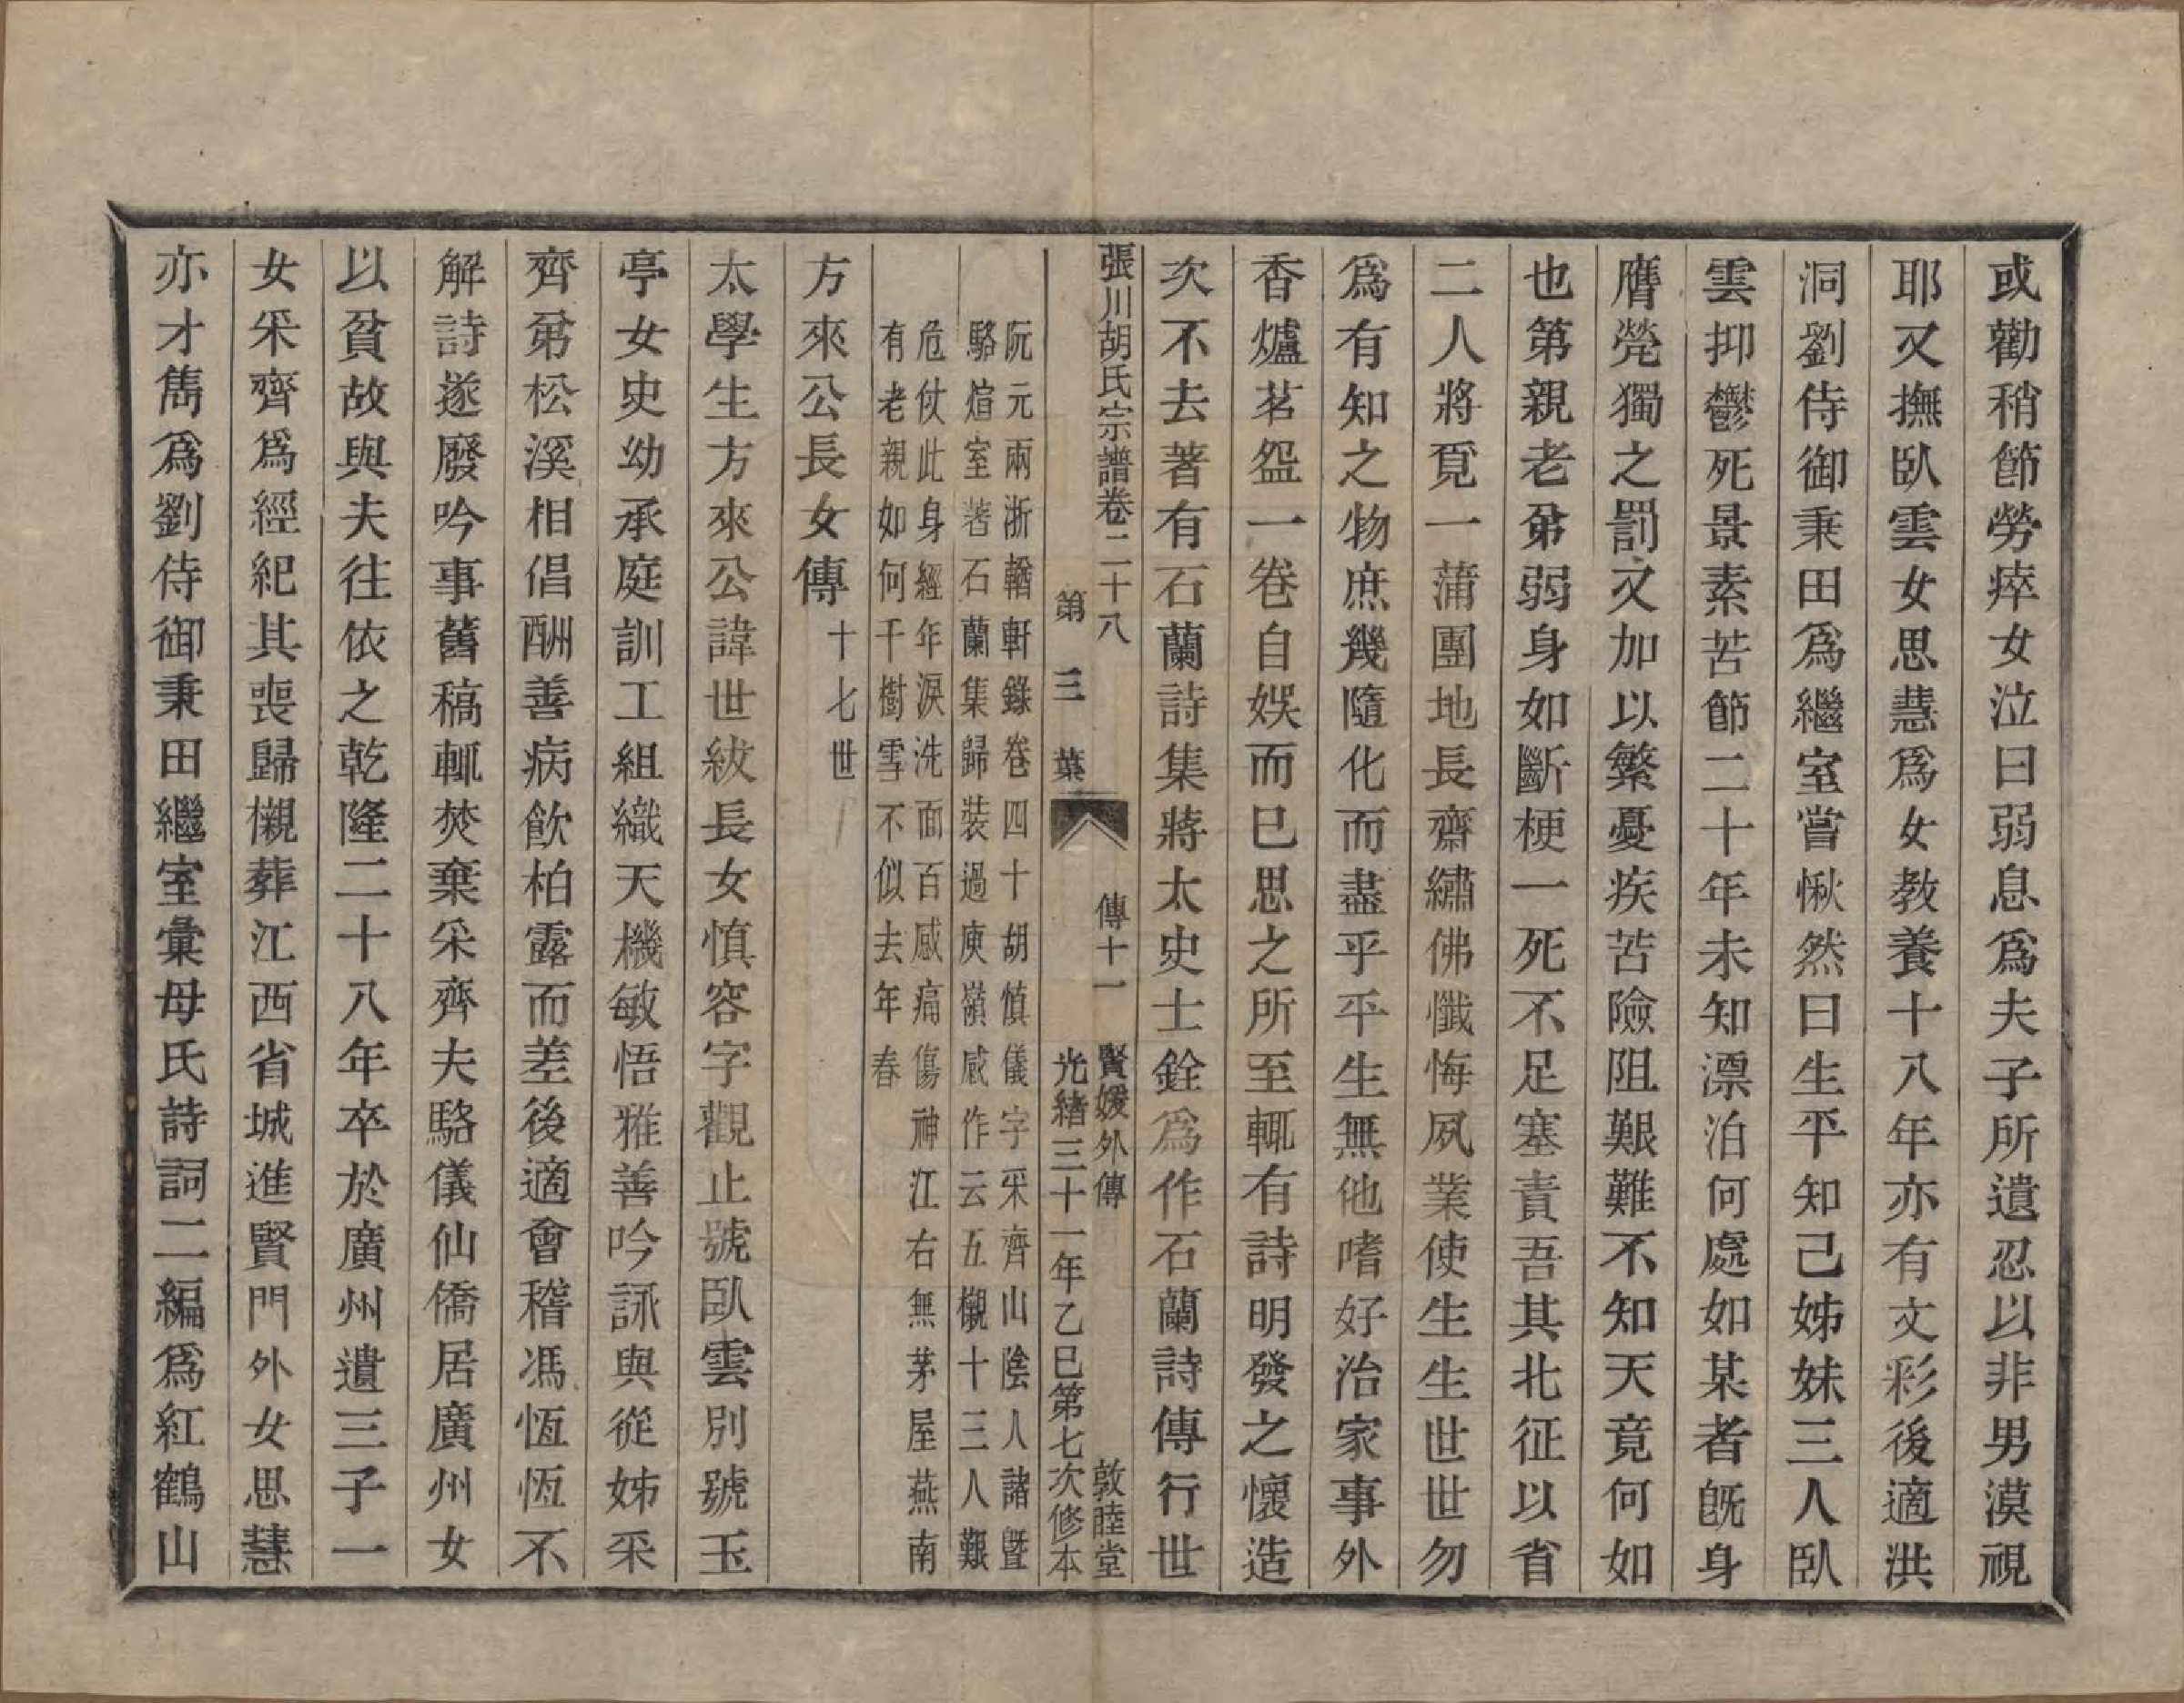 或勸稍節勞瘁女泣曰弱息爲夫子所遺忍以非男漠視
耶又撫臥雲女思慧爲女教養十八年亦有文彩後適洪
洞劉侍御秉田爲繼室嘗愀然曰生平知己姊妹三人臥
雲抑鬱死景素苦節二十年未知漂泊何處如某者旣身
膺煢獨之罰又加以繁憂疾苦險阻艱難不知天竟何如
也第親老弟弱身如斷梗一死不足塞責吾其北征以省
二人將覓一蒲團地長齋繡佛懺悔夙業使生生世世勿
爲有知之物庶幾隨化而盡乎平生無他嗜好治家事外
香爐茗盌一卷自娛而已思之所至輒有詩明發之懷造
次不去著有石蘭詩集蔣太史士銓爲作石蘭詩傳行世
張川胡氏宗譜卷二十八 傳十一 賢媛外傳 敦睦堂
第三葉 光緒三十一年乙巳第七次修本
阮元兩浙輶軒錄卷四十胡慎儀字采齊山陰人諸曁
駱烜室著石蘭集歸裝過庾嶺感作云五櫬十三人艱
危仗此身經年淚洗面百感痛傷神江右無茅屋燕南
有老親如何千樹雪不似去年春
方來公長女傳十七世
太學生方來公諱世紱長女慎容字觀止號臥雲別號玉
亭女史幼承庭訓工組織天機敏悟雅善吟詠與從姊采
齊弟松溪相倡酬善病飲柏露而差後適會稽馮恆恆不
解詩遂廢吟事舊稿輒焚棄采齊夫駱儀仙僑居廣州女
以貧故與夫往依之乾隆二十八年卒於廣州遺三子一
女采齊爲經紀其喪歸櫬葬江西省城進賢門外女思慧
亦才雋爲劉侍御秉田繼室彙母氏詩詞二編爲紅鶴山